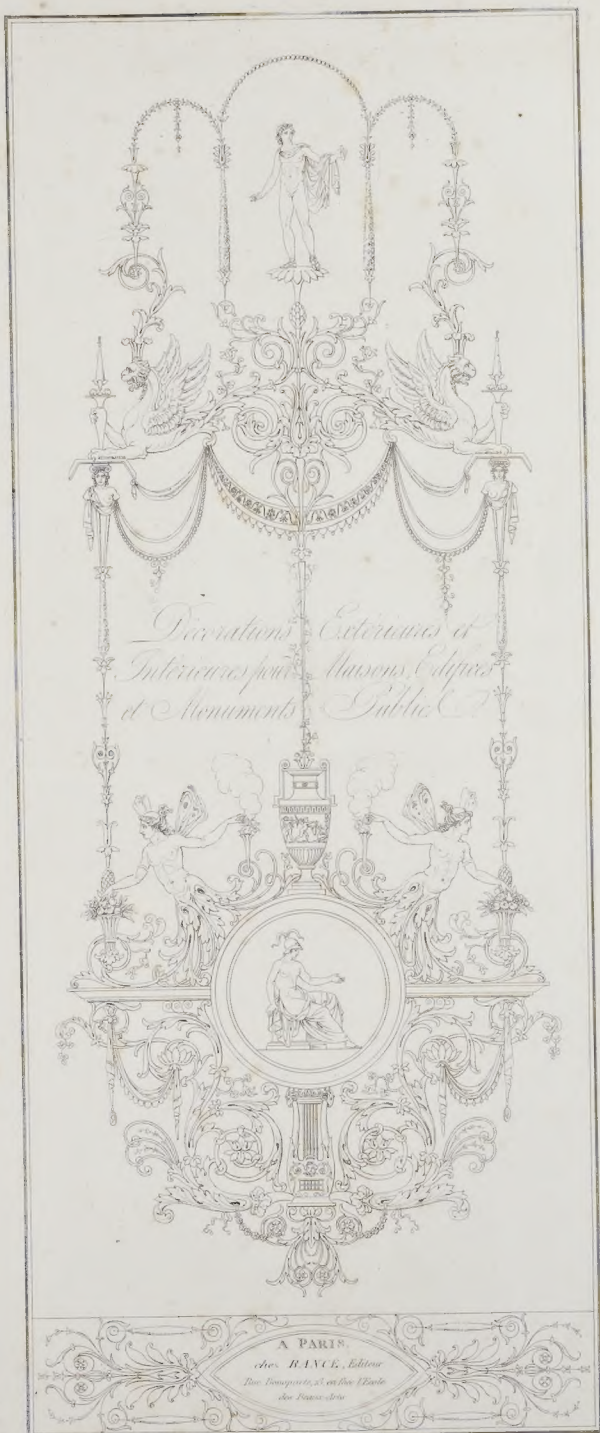 Décorations Extérieures et
Intérieures pour Maisons, Edifices
et Monuments Publics
A PARIS,
chez BANCE, Editeur
Rue Bonaparte, 13, en face l'Ecole
des Beaux-Arts